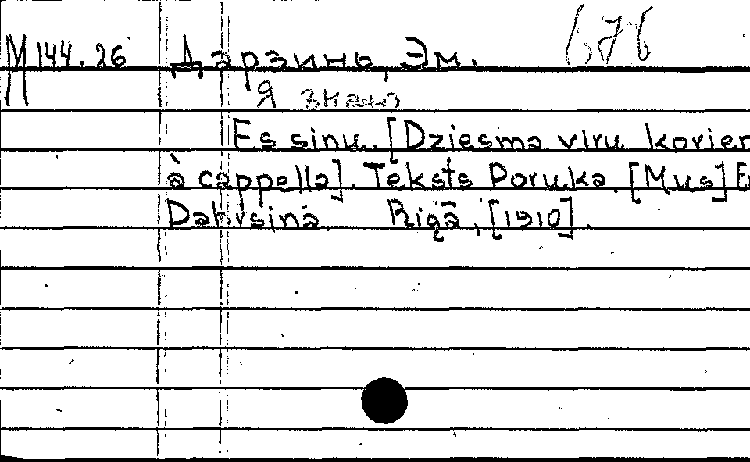 М 144.26 Дарзинь, Эм. 676
Я знаю
Es sinu. [Dziesma viru korien
à cappella]. Teksts Poruka. [Mus] E
Dahrsina Rigā, [1910].